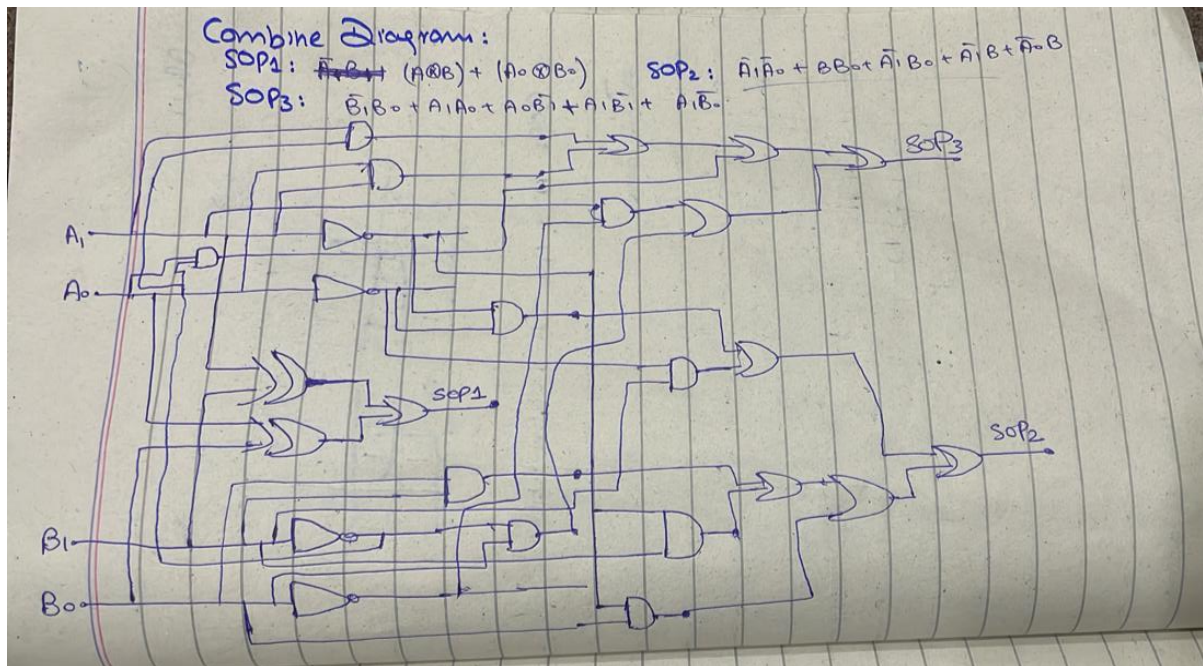 Combine Diagram:
SOP1: (A⊗B) + (A₀⊗B₀) SOP2: Ā₁Ā₀ + BB₀ + Ā₁B₀ + Ā₁B + Ā₀B
SOP3: B̄₁B₀ + A₁A₀ + A₀B̄₁ + A₁B̄₁ + A₁B̄₀
SOP3
A₁
A₀
SOP1
SOP2
B₁
B₀